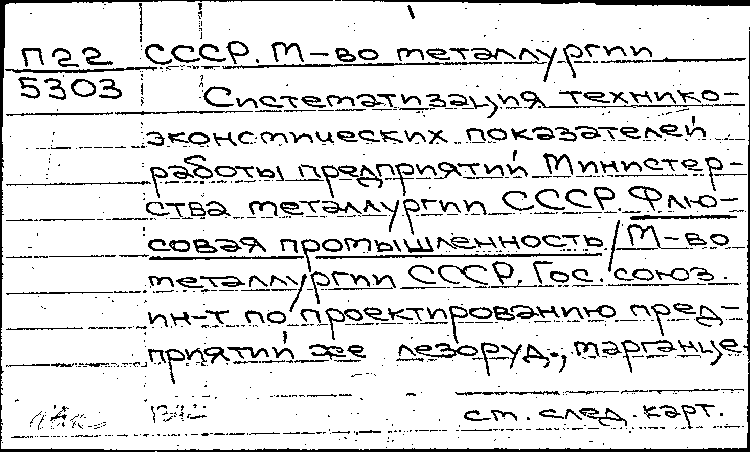 П22 СССР. М-во металлургии
5303 Систематизация технико-
экономических показателей
работы предприятий Министер-
ства металлургии СССР. Флю-
совая промышленность / М-во
металлургии СССР. Гос. союз.
ин-т по проектированию пред-
приятий железоруд., марганце-
см. след. карт.